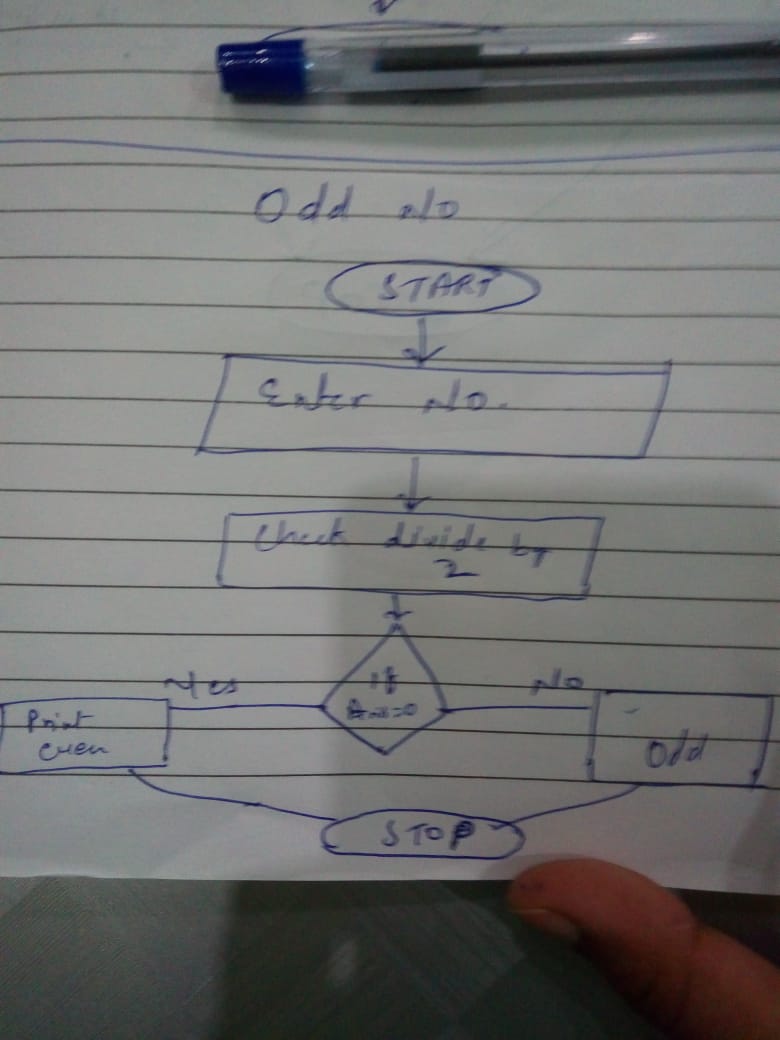 Odd No
START
Enter No.
Check divide by
2
If
Ans=0
Yes
No
Print
even
Odd
STOP